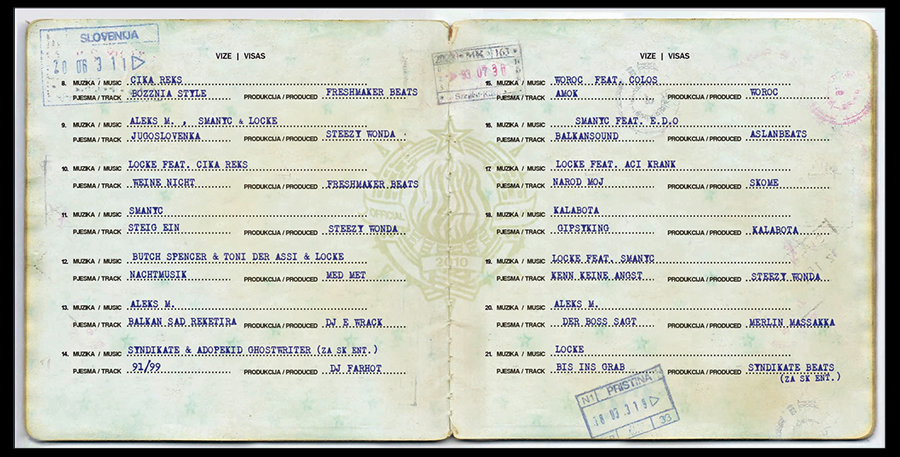 SLOVENIJA
20 06 3 11
VIZE | VISAS
8. MUZIKA / MUSIC CIKA REKS
PJESMA / TRACK BOZZNIA STYLE PRODUKCIJA / PRODUCED FRESHMAKER BEATS
9. MUZIKA / MUSIC ALEKS M. , SMANYC & LOCKE
PJESMA / TRACK JUGOSLOVENKA PRODUKCIJA / PRODUCED STEEZY WONDA
10. MUZIKA / MUSIC LOCKE FEAT. CIKA REKS
PJESMA / TRACK WEINE NICHT PRODUKCIJA / PRODUCED FRESHMAKER BEATS
11. MUZIKA / MUSIC SMANYC
PJESMA / TRACK STEIG EIN PRODUKCIJA / PRODUCED STEEZY WONDA
12. MUZIKA / MUSIC BUTCH SPENCER & TONI DER ASSI & LOCKE
PJESMA / TRACK NACHTMUSIK PRODUKCIJA / PRODUCED MED MET
13. MUZIKA / MUSIC ALEKS M.
PJESMA / TRACK BALKAN SAD REKETIRA PRODUKCIJA / PRODUCED DJ E WRACK
14. MUZIKA / MUSIC SYNDIKATE & ADOPEKID GHOSTWRITER (ZA SK ENT.)
PJESMA / TRACK 91/99 PRODUKCIJA / PRODUCED DJ FARHOT
OFFICIAL
2010
MK 163
VIZE | VISAS
15. MUZIKA / MUSIC WOROC FEAT. COLOS
PJESMA / TRACK AMOK PRODUKCIJA / PRODUCED WOROC
16. MUZIKA / MUSIC SMANYC FEAT. E.D.O
PJESMA / TRACK BALKANSOUND PRODUKCIJA / PRODUCED ASLANBEATS
17. MUZIKA / MUSIC LOCKE FEAT. ACI KRANK
PJESMA / TRACK NAROD MOJ PRODUKCIJA / PRODUCED SKOME
18. MUZIKA / MUSIC KALABOTA
PJESMA / TRACK GIPSYKING PRODUKCIJA / PRODUCED KALABOTA
19. MUZIKA / MUSIC LOCKE FEAT. SMANYC
PJESMA / TRACK KENN KEINE ANGST PRODUKCIJA / PRODUCED STEEZY WONDA
20. MUZIKA / MUSIC ALEKS M.
PJESMA / TRACK DER BOSS SAGT PRODUKCIJA / PRODUCED MERLIN MASSAKKA
21. MUZIKA / MUSIC LOCKE
PJESMA / TRACK BIS INS GRAB PRODUKCIJA / PRODUCED SYNDIKATE BEATS
(ZA SK ENT.)
N1 PRISTINA
33